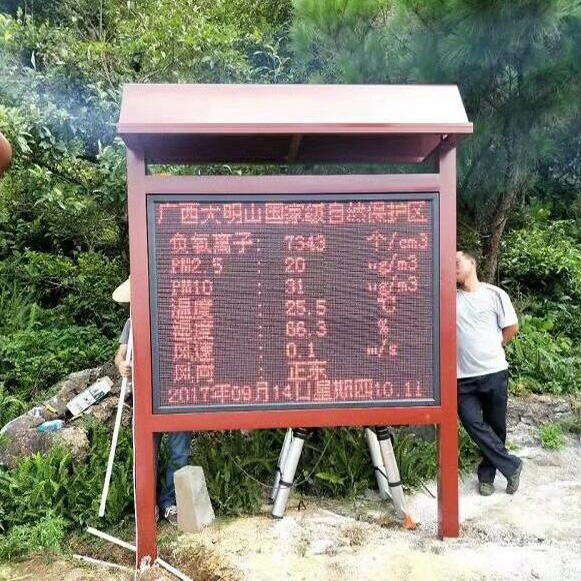 广西大明山国家级自然保护区
负氧离子： 7343 个/cm3
PM2.5 ： 20 ug/m3
PM10 ： 31 ug/m3
温度 ： 25.5 ℃
湿度 ： 86.3 %
风速 ： 0.1 m/s
风向 ： 正东
2017年09月14日星期四10.11